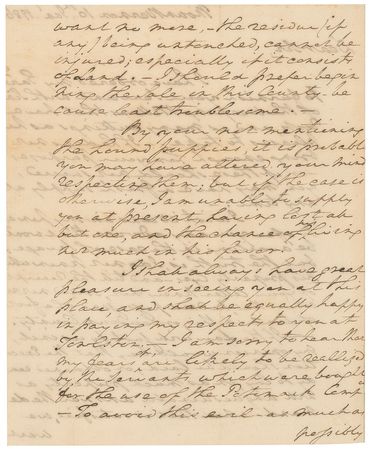 want no more, – the residue (if
any) being untouched, cannot be
injured; especially if it consists
of Land. – I should prefer begin
ning the sale in this County – be
cause least troublesome. –
By your not mentioning
the hound puppies, it is probable
you may have altered your mind
respecting them; but if the case is
otherwise, I am unable to supply
you at present, having lost all
but one, and the chance of his living
not much in his favor.
I shall always have great
pleasure in seeing you at this
place and shall be equally happy
in paying my respects to you at
– I am sorry to hear that
my fears are likely to be realized
by the servants which were bought
for the use of the Potomack Comp.y
– To avoid this evil – as much as
possibly